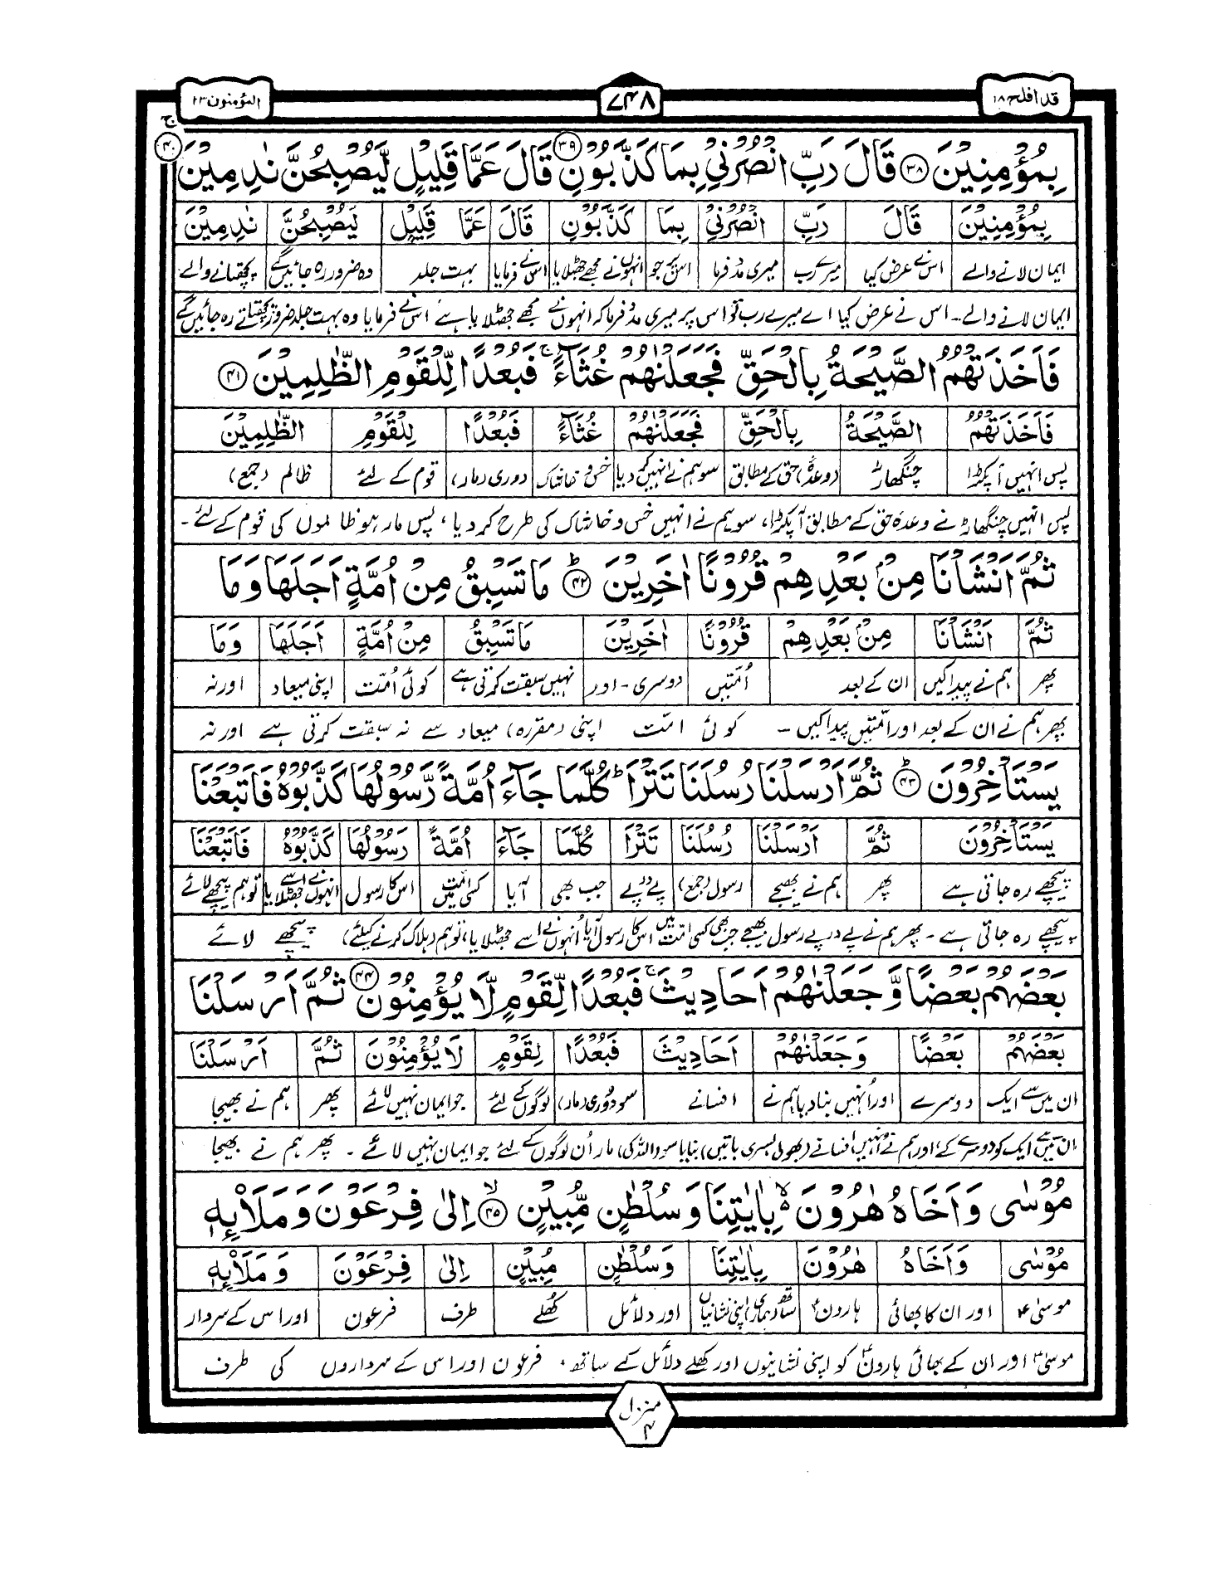 قد افلح ۱۸
۷۴۸
المؤمنون ۲۳
بِمُؤْمِنِيْنَ ۳۸ قَالَ رَبِّ انْصُرْنِيْ بِمَا كَذَّبُوْنِ ۳۹ قَالَ عَمَّا قَلِيْلٍ لَّيُصْبِحُنَّ نٰدِمِيْنَ ۴۰ ج
بِمُؤْمِنِيْنَ قَالَ رَبِّ انْصُرْنِيْ بِمَا كَذَّبُوْنِ قَالَ عَمَّا قَلِيْلٍ لَيُصْبِحُنَّ نٰدِمِيْنَ
ایمان لانے والے اس نے عرض کیا میرے رب میری مدد فرما اس پر جو انہوں نے مجھے جھٹلایا اس نے فرمایا بہت جلد وہ ضرور رہ جائیں گے پچھتانے والے
ایمان لانے والے۔ اس نے عرض کیا اے میرے رب تو اس پر میری مدد فرما کہ انہوں نے مجھے جھٹلایا ہے اس نے فرمایا وہ بہت جلد ضرور پچھتاتے رہ جائیں گے
فَاَخَذَتْهُمُ الصَّيْحَةُ بِالْحَقِّ فَجَعَلْنٰهُمْ غُثَآءً ج فَبُعْدًا لِّلْقَوْمِ الظّٰلِمِيْنَ ۴۱
فَاَخَذَتْهُمُ الصَّيْحَةُ بِالْحَقِّ فَجَعَلْنٰهُمْ غُثَآءً فَبُعْدًا لِلْقَوْمِ الظّٰلِمِيْنَ
پس انہیں آپکڑا چنگھاڑ (وعدۂ) حق کے مطابق سو ہم نے انہیں کر دیا خس و خاشاک دوری (مار) قوم کے لئے ظالم (جمع)
پس انہیں چنگھاڑ نے وعدہ حق کے مطابق آپکڑا، سو ہم نے انہیں خس و خاشاک کی طرح کر دیا، پس مار ہو ظالموں کی قوم کے لئے۔
ثُمَّ اَنْشَاْنَا مِنْۢ بَعْدِهِمْ قُرُوْنًا اٰخَرِيْنَ ۴۲ مَا تَسْبِقُ مِنْ اُمَّةٍ اَجَلَهَا وَمَا
ثُمَّ اَنْشَاْنَا مِنْۢ بَعْدِهِمْ قُرُوْنًا اٰخَرِيْنَ مَا تَسْبِقُ مِنْ اُمَّةٍ اَجَلَهَا وَمَا
پھر ہم نے پیدا کیں ان کے بعد اُمتیں دوسری۔ اور نہیں سبقت کرتی ہے کوئی اُمّت اپنی میعاد اور نہ
پھر ہم نے ان کے بعد اور اُمّتیں پیدا کیں۔ کوئی امّت اپنی (مقررہ) میعاد سے نہ سبقت کرتی ہے اور نہ
يَسْتَاْخِرُوْنَ ۴۳ ثُمَّ اَرْسَلْنَا رُسُلَنَا تَتْرَا ط كُلَّمَا جَآءَ اُمَّةً رَّسُوْلُهَا كَذَّبُوْهُ فَاَتْبَعْنَا
يَسْتَاْخِرُوْنَ ثُمَّ اَرْسَلْنَا رُسُلَنَا تَتْرَا كُلَّمَا جَآءَ اُمَّةً رَسُوْلُهَا كَذَّبُوْهُ فَاَتْبَعْنَا
پیچھے رہ جاتی ہے پھر ہم نے بھیجے رسول (جمع) پے در پے جب بھی آیا کسی اُمّت میں اس کا رسول انہوں نے اسے جھٹلایا تو ہم پیچھے لائے
پیچھے رہ جاتی ہے۔ پھر ہم نے پے در پے رسول بھیجے جب بھی کسی امّت میں اس کا رسول آیا اُنہوں نے اسے جھٹلایا، تو ہم (ہلاک کرنے کیلئے) پیچھے لائے
بَعْضَهُمْ بَعْضًا وَّ جَعَلْنٰهُمْ اَحَادِيْثَ ج فَبُعْدًا لِّقَوْمٍ لَّا يُؤْمِنُوْنَ ۴۴ ثُمَّ اَرْسَلْنَا
بَعْضَهُمْ بَعْضًا وَجَعَلْنٰهُمْ اَحَادِيْثَ فَبُعْدًا لِقَوْمٍ لَا يُؤْمِنُوْنَ ثُمَّ اَرْسَلْنَا
ان میں سے ایک دوسرے اور اُنہیں بنا دیا ہم نے افسانے سو دُوری (مار) لوگوں کے لئے جو ایمان نہیں لائے پھر ہم نے بھیجا
ان میں سے ایک کو دوسرے کے اور ہم نے اُنہیں افسانے (بھولی بسری باتیں) بنایا سو (اللہ کی) مار اُن لوگوں کے لئے جو ایمان نہیں لائے۔ پھر ہم نے بھیجا
مُوْسٰى وَاَخَاهُ هٰرُوْنَ بِاٰيٰتِنَا وَسُلْطٰنٍ مُّبِيْنٍ ۴۵ اِلٰى فِرْعَوْنَ وَمَلَا۟ئِهٖ
مُوْسٰى وَاَخَاهُ هٰرُوْنَ بِاٰيٰتِنَا وَسُلْطٰنٍ مُبِيْنٍ اِلٰى فِرْعَوْنَ وَمَلَا۟ئِهٖ
موسیٰؑ اور ان کا بھائی ہارونؑ ساتھ (ہماری) اپنی نشانیاں اور دلائل کُھلے طرف فرعون اور اس کے سردار
موسیٰؑ اور ان کے بھائی ہارونؑ کو اپنی نشانیوں اور کھلے دلائل کے ساتھ، فرعون اور اس کے سرداروں کی طرف
منزل ۴